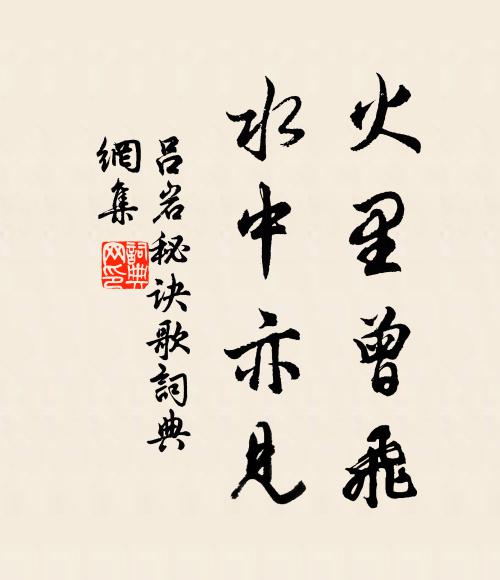 火里曾飛
水中亦見
吕岩秘訣歌詞典
網集
詞典網印